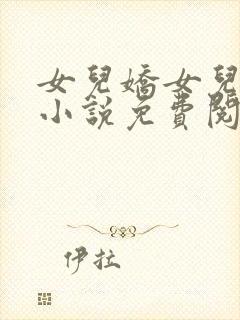 女兒嬌女兒
小說免費閱
伊拉